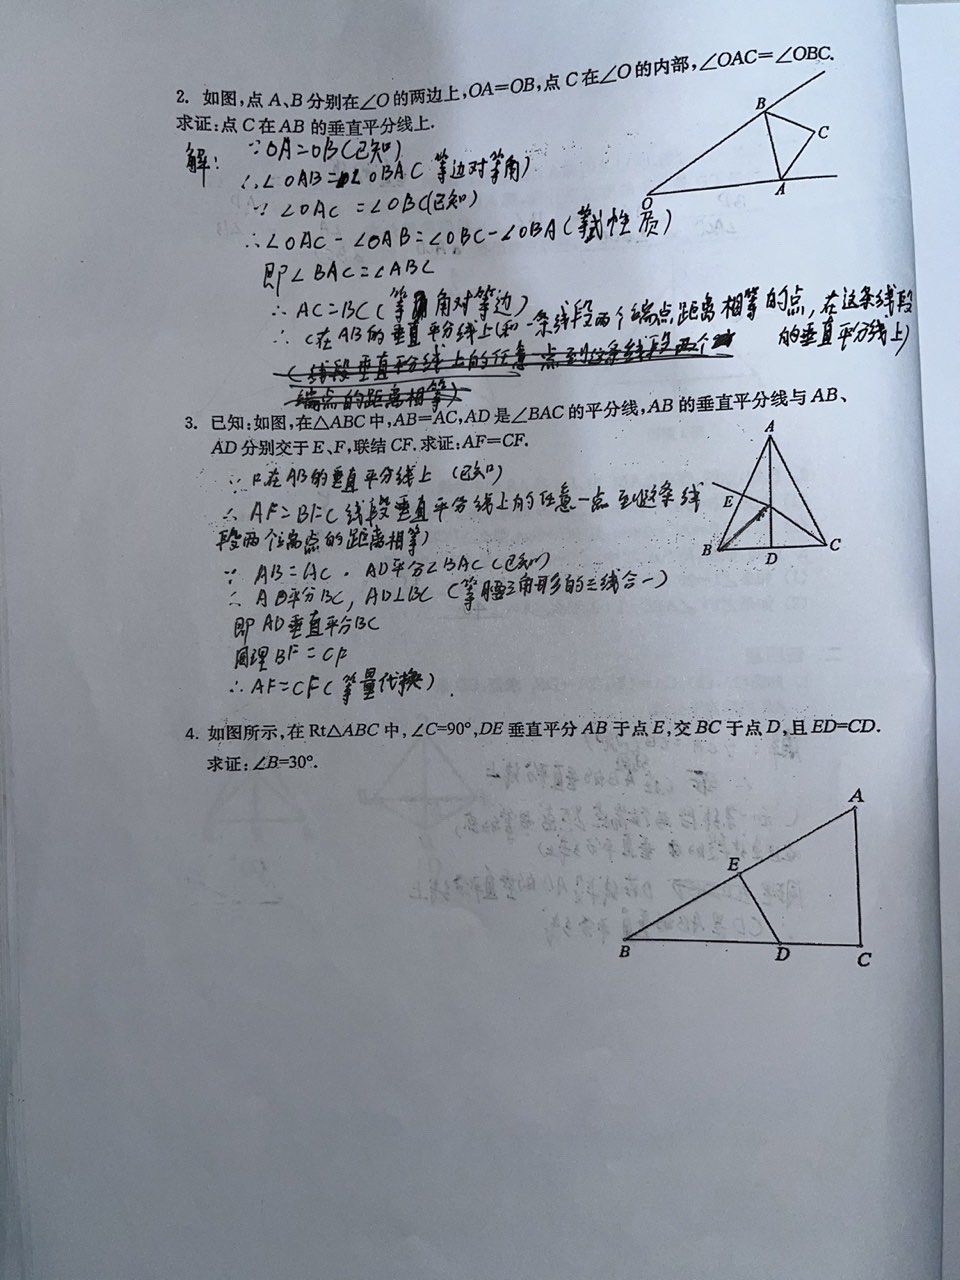 2. 如图,点A、B分别在∠O的两边上,OA=OB,点C在∠O的内部,∠OAC=∠OBC.
求证:点C在AB的垂直平分线上.
解: ∵OA=OB(已知)
∴∠OAB=∠OBA C 等边对等角)
∵ ∠OAC =∠OBC(已知)
∴∠OAC-∠OAB=∠OBC-∠OBA(等式性质)
即∠BAC=∠ABC
∴ AC=BC(等角对等边)
∴ C在AB的垂直平分线上(和一条线段两个端点距离相等的点,在这条线段
的垂直平分线上)
(线段垂直平分线上的任意一点到这条线段两个
端点的距离相等)
B
C
A
O
3. 已知:如图,在△ABC中,AB=AC,AD是∠BAC的平分线,AB的垂直平分线与AB、
AD分别交于E、F,联结CF.求证:AF=CF.
∵F在AB的垂直平分线上 (已知)
∴ AF=BF(线段垂直平分线上的任意一点到这条线
段两个端点的距离相等)
∵ AB=AC . AD平分∠BAC(已知)
∴ AD平分BC, AD⊥BC (等腰三角形的三线合一)
即 AD垂直平分BC
同理 BF=CF
∴ AF=CF(等量代换).
A
E
B
D
C
4. 如图所示,在Rt△ABC中,∠C=90°,DE垂直平分AB于点E,交BC于点D,且ED=CD.
求证:∠B=30°.
A
E
B
D
C